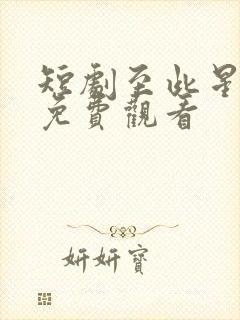 短劇至此星
免費觀看
妍妍寶